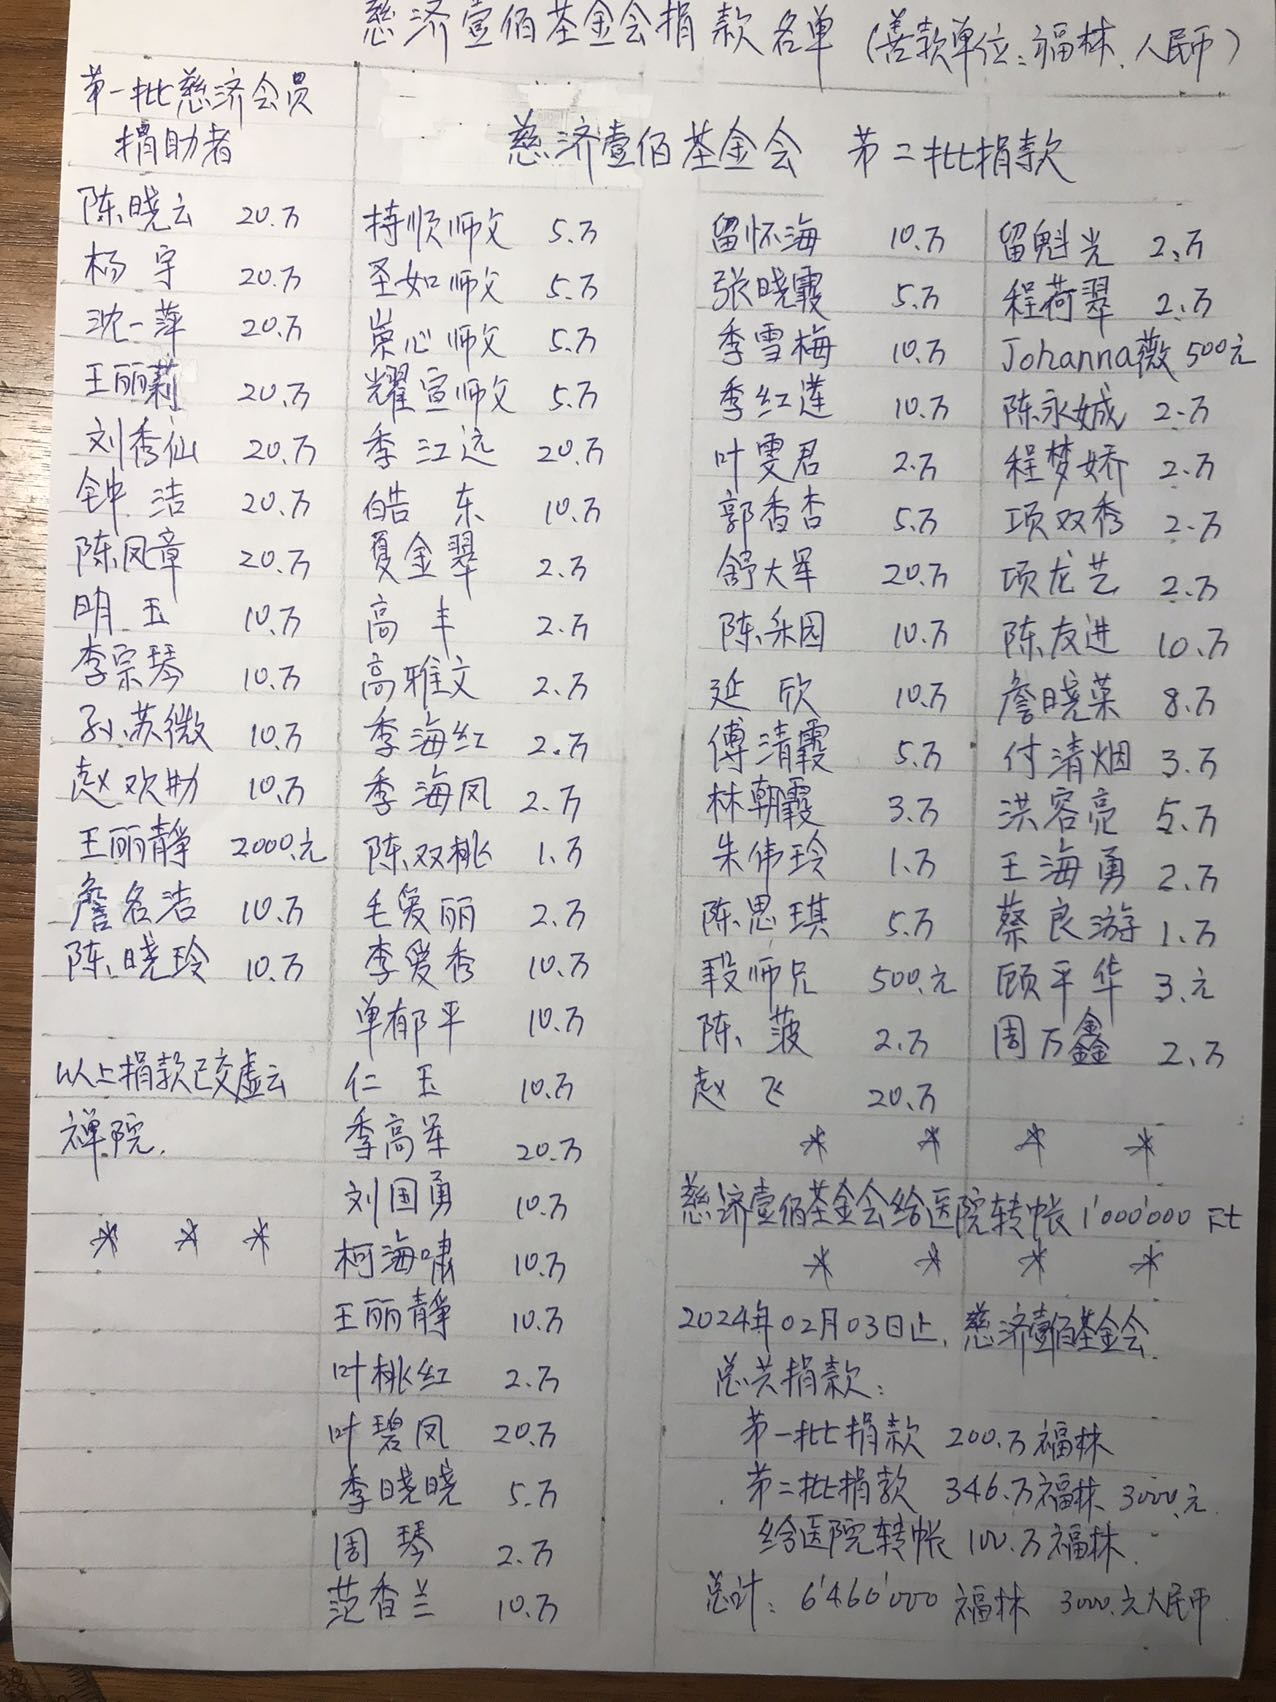 慈济壹佰基金会捐款名单（善款单位：福林、人民币）
第一批慈济会员
捐助者
慈济壹佰基金会 第二批捐款
陈晓云 20万
杨宇 20万
沈一萍 20万
王丽莉 20万
刘秀仙 20万
钟洁 20万
陈凤章 20万
明玉 10万
李宗琴 10万
孙苏微 10万
赵欢勋 10万
王丽静 2000元
詹名洁 10万
陈晓玲 10万
以上捐款已交虚云
禅院.
* * *
持顺师父 5万
圣如师父 5万
崇心师父 5万
耀宣师父 5万
季江远 20万
皓东 10万
夏金翠 2万
高丰 2万
高雅文 2万
季海红 2万
季海凤 2万
陈双桃 1万
毛爱丽 2万
李爱秀 10万
单郁平 10万
仁玉 10万
季高军 20万
刘国勇 10万
柯海啸 10万
王丽静 10万
叶桃红 2万
叶碧凤 20万
季晓晓 5万
周琴 2万
范香兰 10万
留怀海 10万
张晓霞 5万
季雪梅 10万
季红莲 10万
叶雯君 2万
郭香杏 5万
舒大军 20万
陈采园 10万
延欣 10万
傅清霞 5万
林朝霞 3万
朱伟玲 1万
陈思琪 5万
段师兄 500元
陈菠 2万
赵飞 20万
留魁光 2万
程荷翠 2万
Johanna薇 500元
陈永娍 2万
程梦娇 2万
项双秀 2万
项龙艺 2万
陈友进 10万
詹晓菜 8万
付清烟 3万
洪容亮 5万
王海勇 2万
蔡良游 1万
顾平华 3元
周万鑫 2万
* * * *
慈济壹佰基金会给医院转帐 1'000'000 Ft
* * * *
2024年02月03日止，慈济壹佰基金会
总共捐款：
第一批捐款 200万福林
第二批捐款 346万福林 3000元
给医院转帐 100万福林
总计：6'460'000 福林 3000元人民币